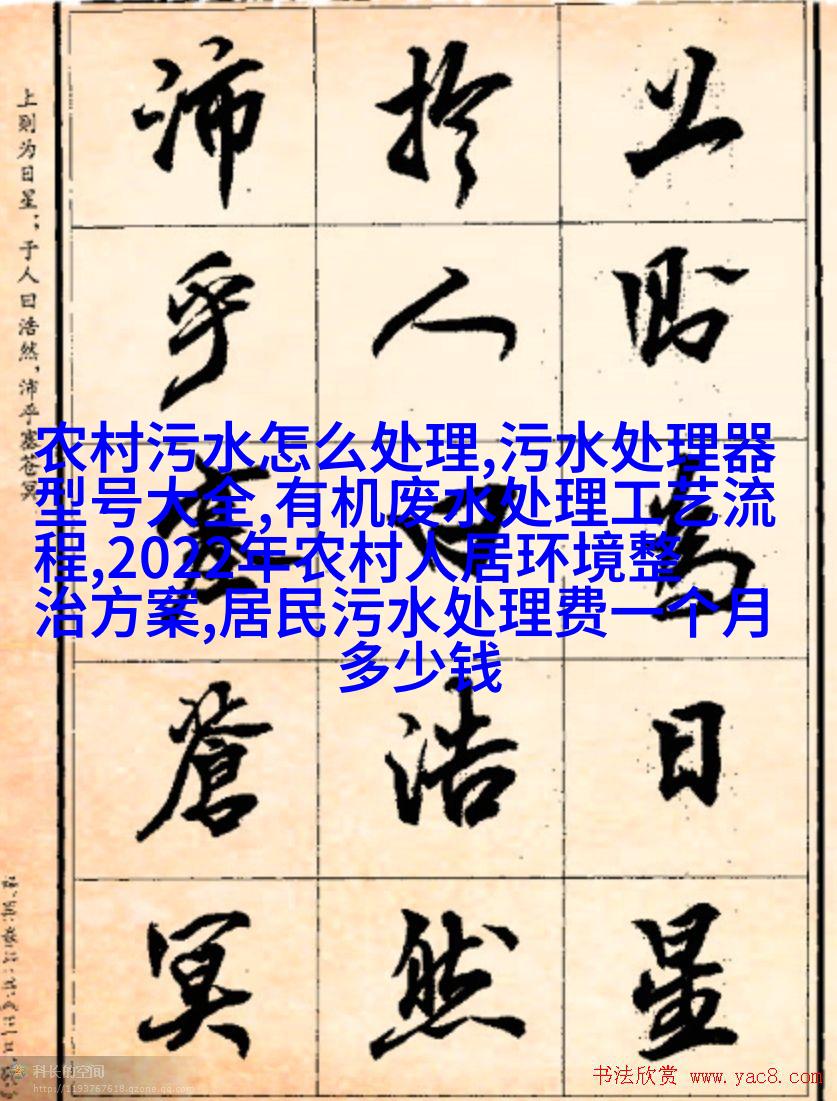 上則為日星
於人曰浩然
沛乎塞蒼冥
上则为日星；于人曰浩然，沛乎塞苍冥
农村污水怎么处理,污水处理器
型号大全,有机废水处理工艺流
程,2022年农村人居环境整
治方案,居民污水处理费一个月
多少钱
科长的空间
http://1193767618.qzone.qq.com
书法欣赏 www.yac8.com